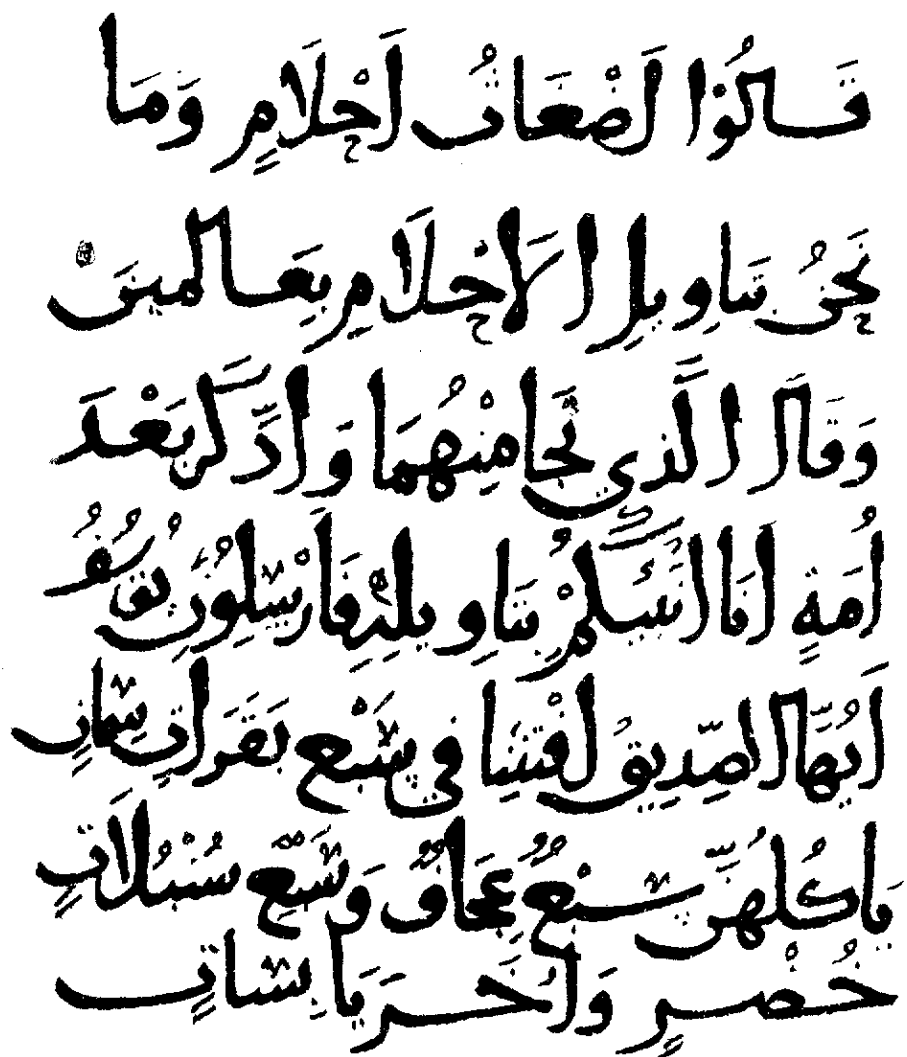 قَالُوٓا أَضْغَاثُ أَحْلَامٍ وَمَا
نَحْنُ بِتَاوِيلِ الْأَحْلَامِ بِعَالِمِينَ
وَقَالَ الَّذِي نَجَا مِنْهُمَا وَادَّكَرَ بَعْدَ
أُمَّةٍ أَنَا أُنَبِّئُكُمْ بِتَاوِيلِهِ فَأَرْسِلُونِ يُوسُفُ
أَيُّهَا الصِّدِّيقُ أَفْتِنَا فِي سَبْعِ بَقَرَاتٍ سِمَانٍ
يَاكُلُهُنَّ سَبْعٌ عِجَافٌ وَسَبْعِ سُنْبُلَاتٍ
خُضْرٍ وَأُخَرَ يَابِسَاتٍ